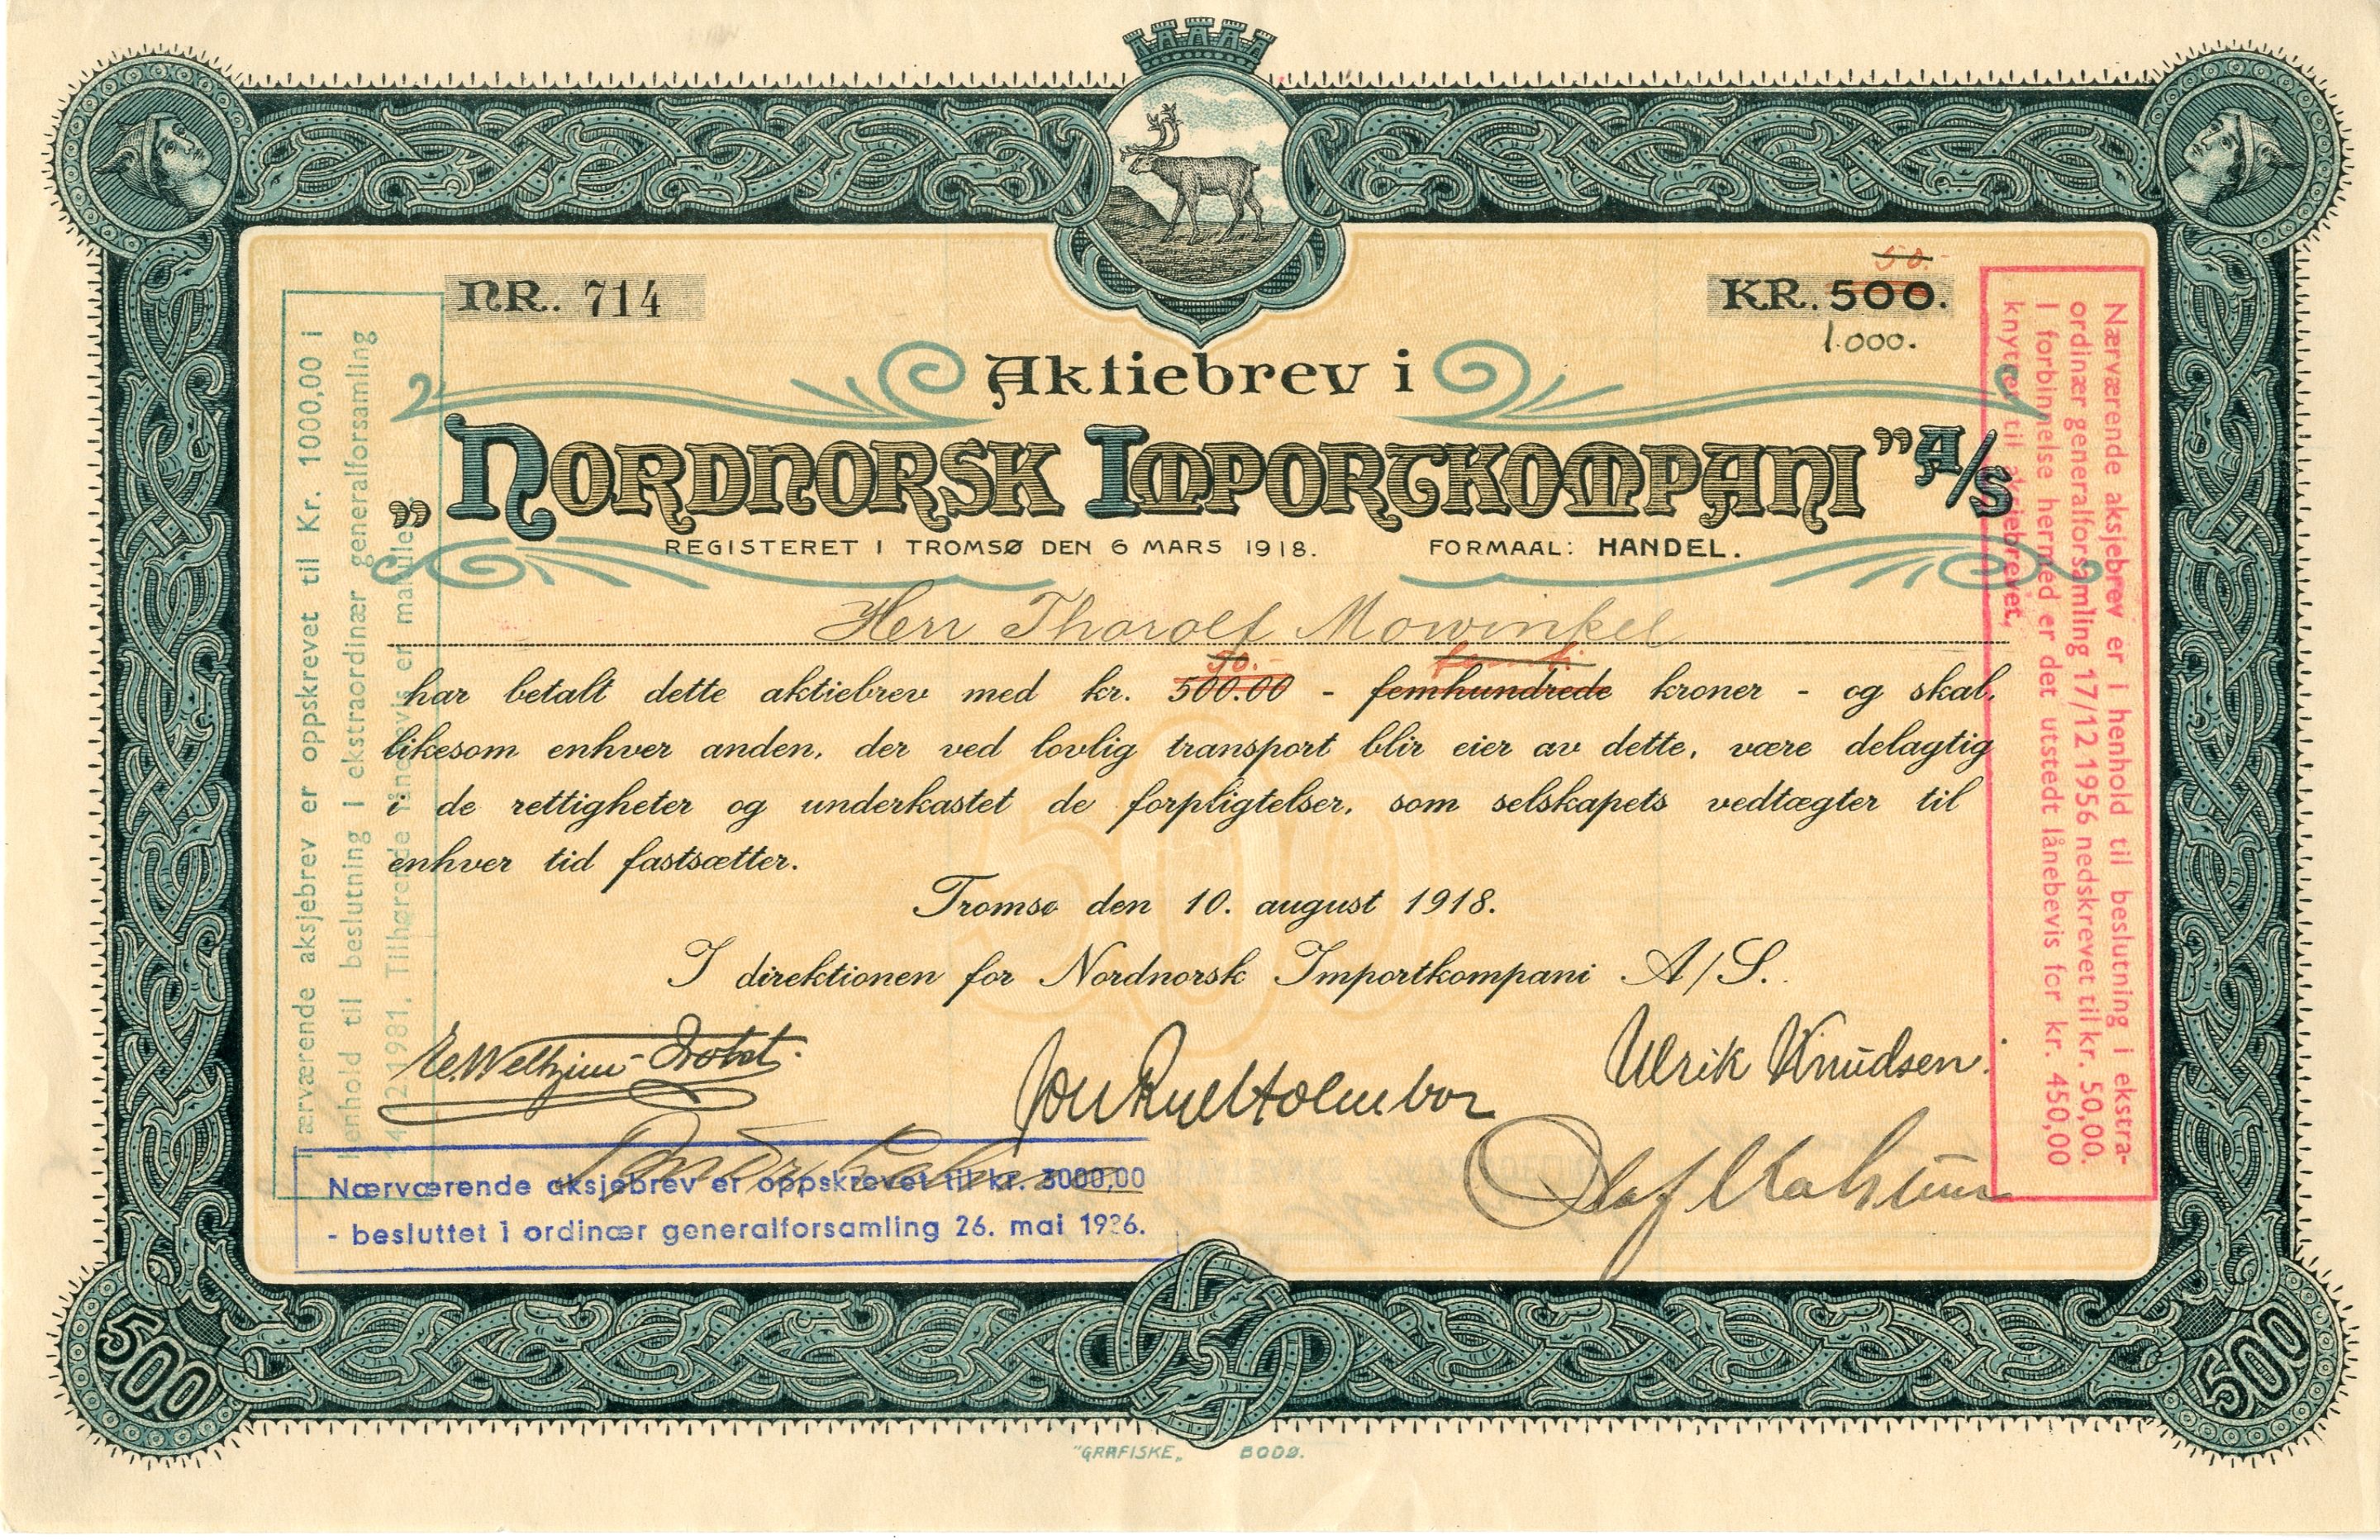 NR. 714
50.-
KR. 500.
1.000.
Aktiebrev i
„NORDNORSK IMPORTKOMPANI” A/S
REGISTERET I TROMSØ DEN 6 MARS 1918. FORMAAL: HANDEL.
Herr Thorolf Mowinkel
50.- femti
har betalt dette aktiebrev med kr. 500.00 - femhundrede kroner - og skal,
likesom enhver anden, der ved lovlig transport blir eier av dette, være delagtig
i de rettigheter og underkastet de forpligtelser, som selskapets vedtægter til
enhver tid fastsætter.
Tromsø den 10. august 1918.
I direktionen for Nordnorsk Importkompani A/S.
Ulrik Knudsen.
Olaf
Nærværende aksjebrev er oppskrevet til kr. 3000,00
- besluttet i ordinær generalforsamling 26. mai
ærværende aksjebrev er oppskrevet til Kr. 1000,00 i
henhold til beslutning i ekstraordinær generalforsamling
1981. Tilhørende lånebevis er makulert.
Nærværende aksjebrev er i henhold til beslutning i ekstra-
ordinær generalforsamling 17/12 1956 nedskrevet til kr. 50,00.
I forbinnelse hermed er det utstedt lånebevis for kr. 450,00
knyttet til aksjebrevet,
500
500
"GRAFISKE„ BODØ.